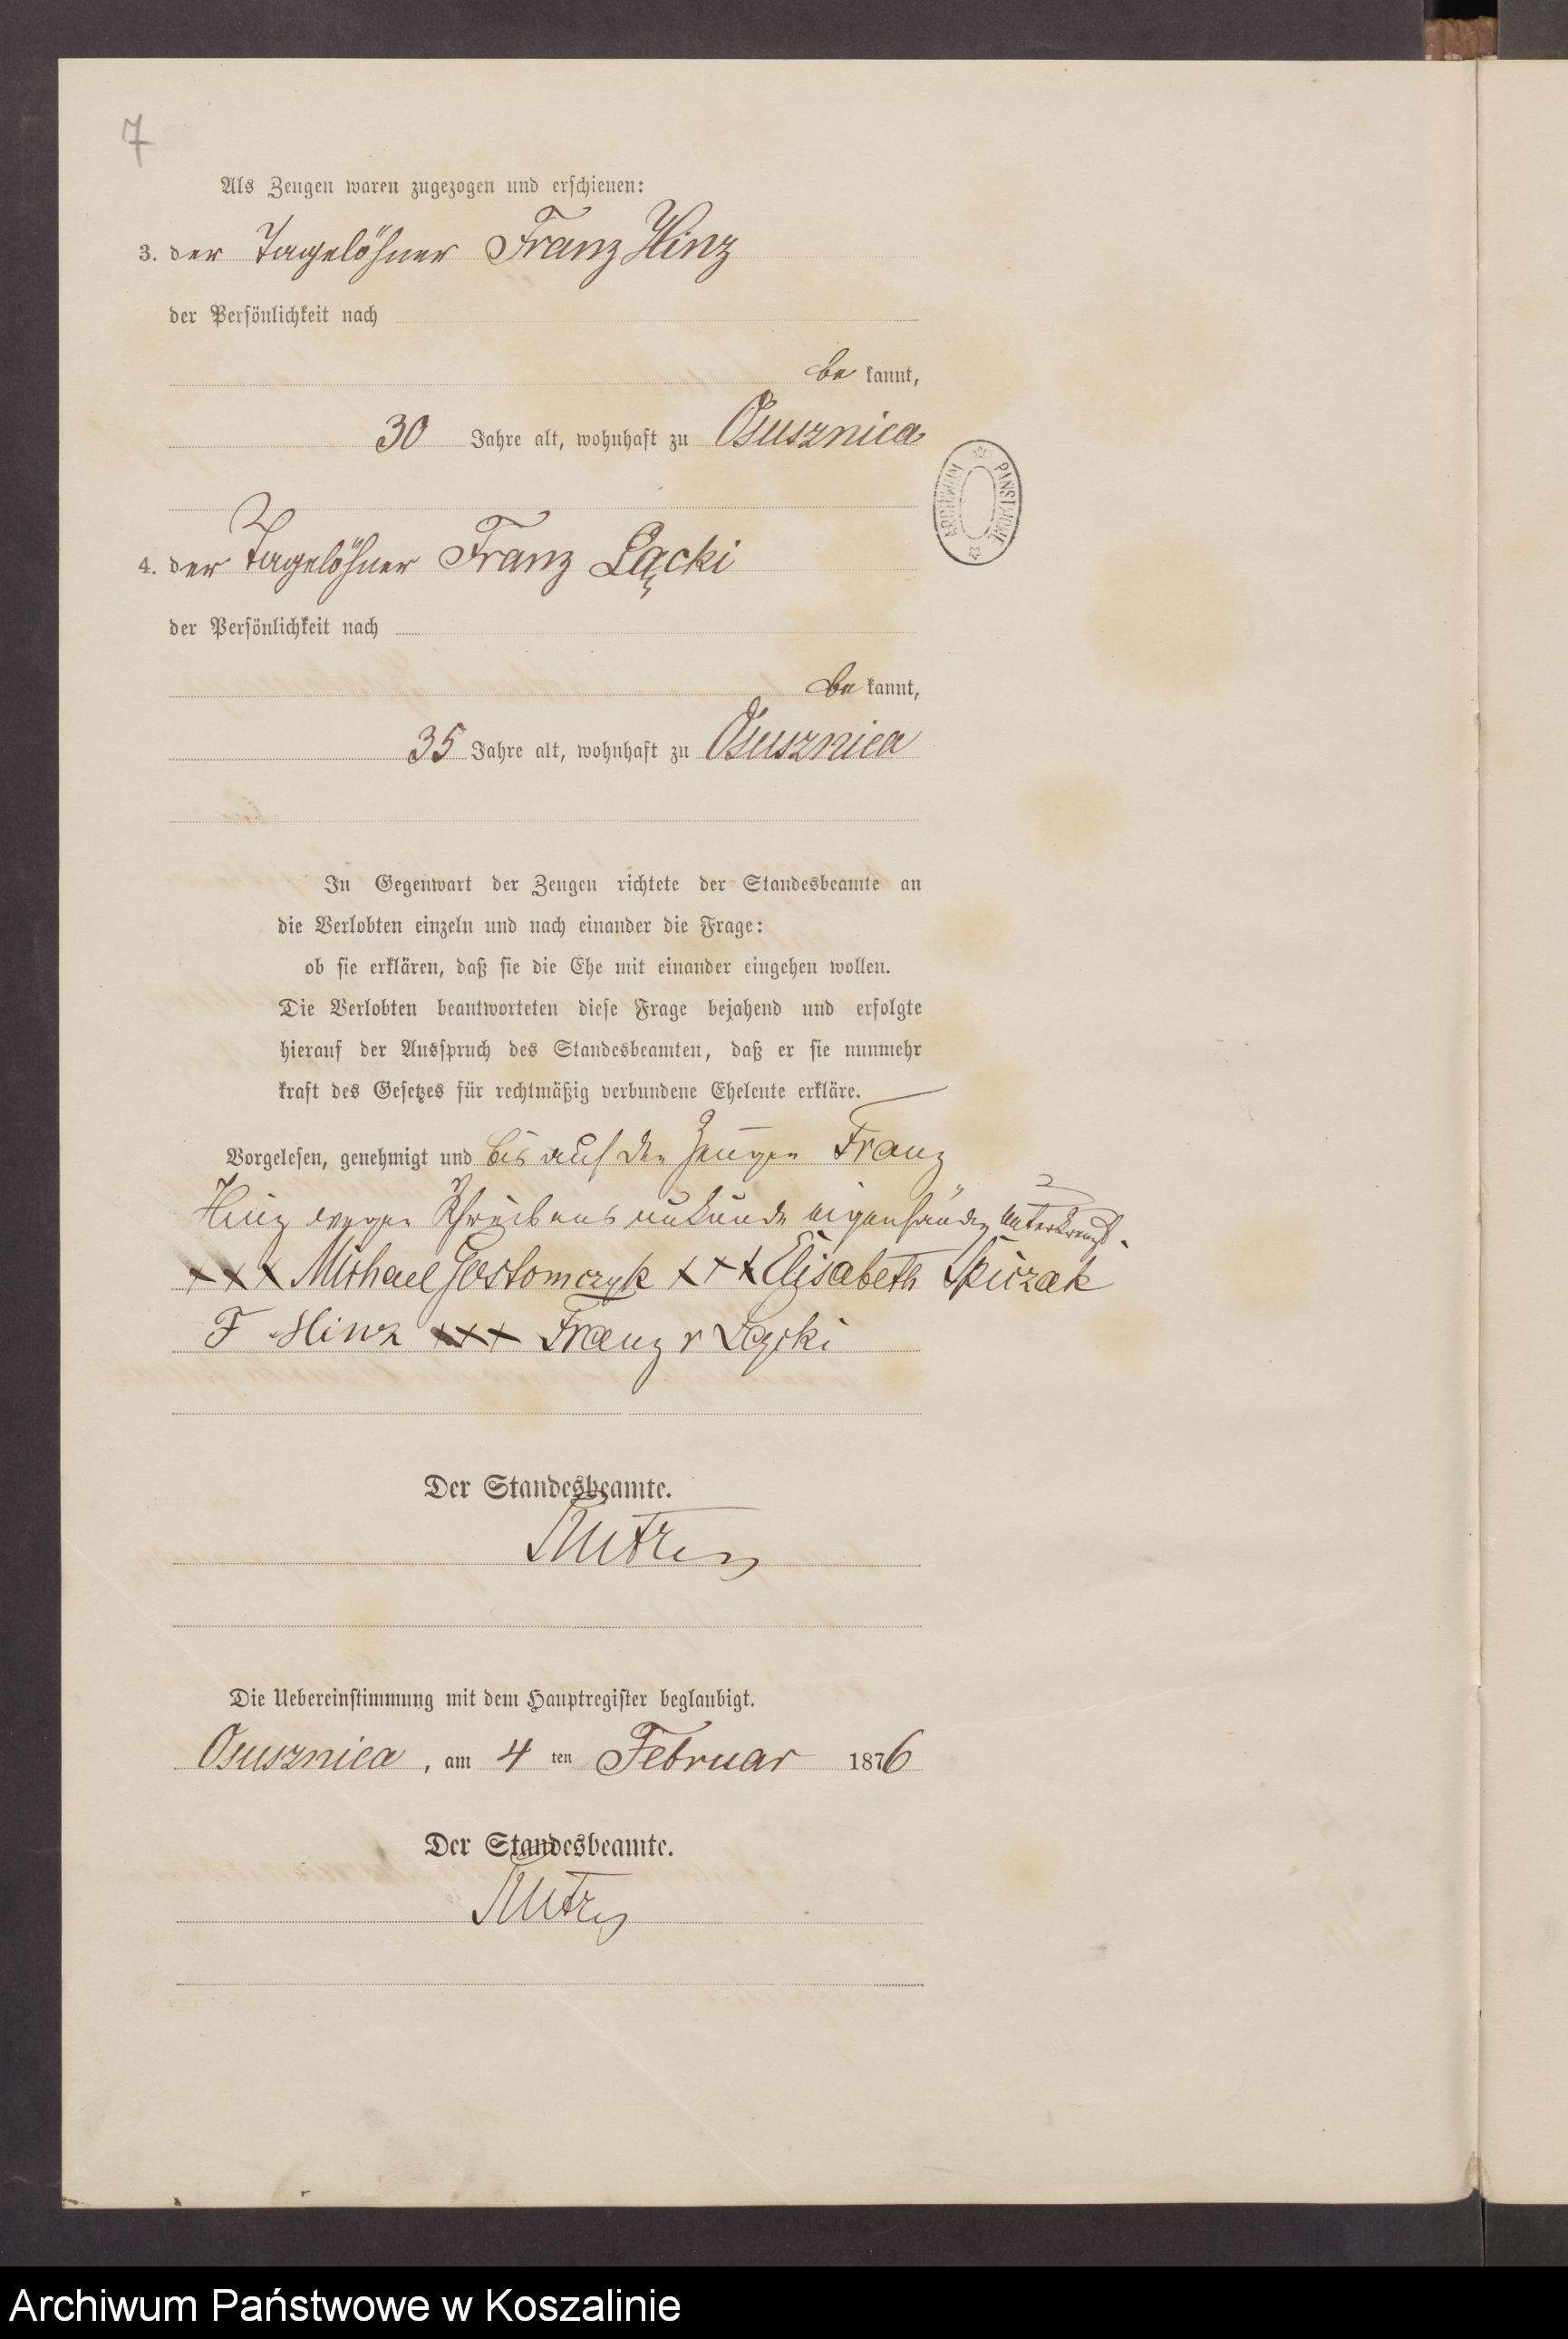 7
Als Zeugen waren zugezogen und erschienen:
3. der Tagelöhner Franz Hinz
der Persönlichkeit nach
be kannt,
30 Jahre alt, wohnhaft zu Osusznica
ARCHIWUM PAŃSTWOWE
4. der Tagelöhner Franz Łącki
der Persönlichkeit nach
be kannt,
35 Jahre alt, wohnhaft zu Osusznica
In Gegenwart der Zeugen richtete der Standesbeamte an
die Verlobten einzeln und nach einander die Frage:
ob sie erklären, daß sie die Ehe mit einander eingehen wollen.
Die Verlobten beantworteten diese Frage bejahend und erfolgte
hierauf der Ausspruch des Standesbeamten, daß er sie nunmehr
kraft des Gesetzes für rechtmäßig verbundene Eheleute erkläre.
Vorgelesen, genehmigt und bis auf den Zeugen Franz
Hinz wegen Schreibens unkunde eigenhändig unterkreuzt.
xxx Michael Gostomczyk xxx Elisabeth Spiczak
F Hinz xxx Franz v Łącki
Der Standesbeamte.
Die Uebereinstimmung mit dem Hauptregister beglaubigt.
Osusznica, am 4 ten Februar 1876
Der Standesbeamte.
Archiwum Państwowe w Koszalinie